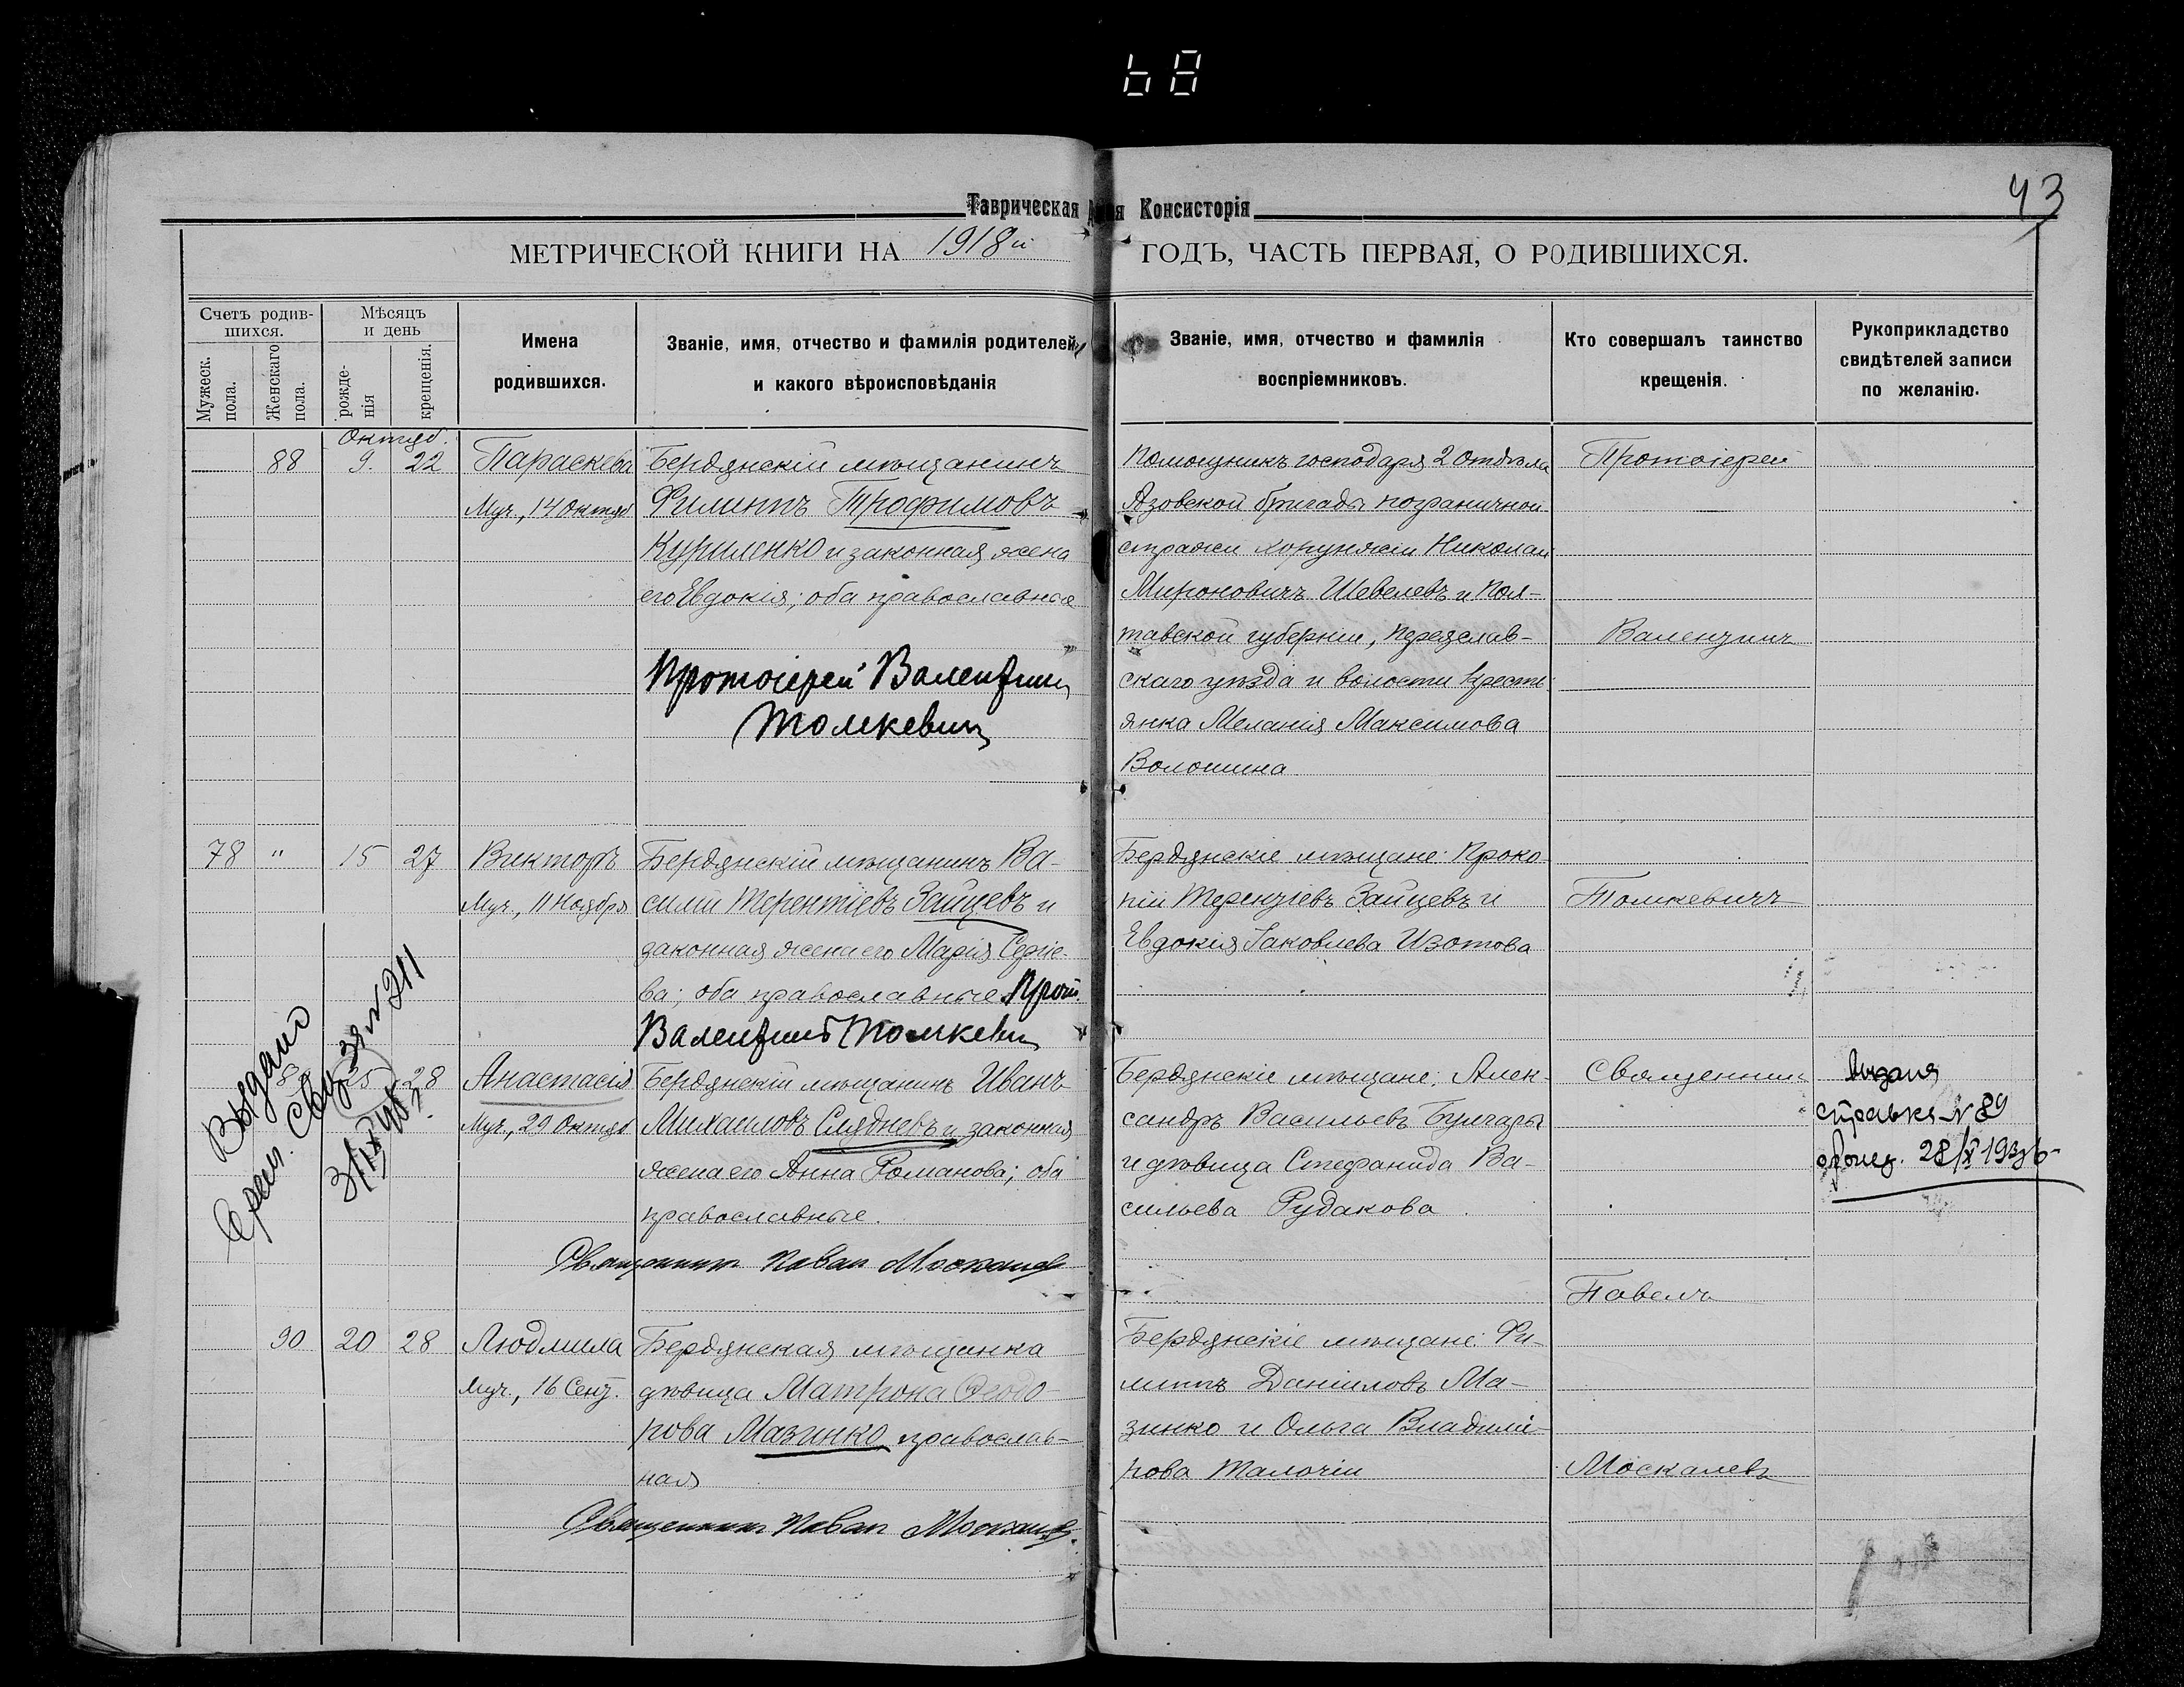 68
43
Таврическая Консисторія
МЕТРИЧЕСКОЙ КНИГИ НА 1918й ГОДЪ, ЧАСТЬ ПЕРВАЯ, О РОДИВШИХСЯ.
Счетъ родив-
шихся.
Мужеск.
пола.
Женскаго
пола.
Мѣсяцъ
и день
рожде-
нія
крещенія.
Имена
родившихся.
Званіе, имя, отчество и фамилія родителей,
и какого вѣроисповѣданія
Званіе, имя, отчество и фамилія
воспріемниковъ.
Кто совершалъ таинство
крещенія.
Рукоприкладство
свидѣтелей записи
по желанію.
Октяб.
88 9. 22
Параскева
Муч., 14 Октяб
Бердянскій мѣщанинъ
Филиппъ Трофимовъ
Куриленко и законная жена
его Евдокія; оба православные
Протоіерей Валентинъ
Томкевичъ
Помощникъ господаря 2 Отдѣла
Азовской бригады пограничной
стражи хорунжій Николай
Мироновичъ Шевелевъ и Пол-
тавской губерніи, Переяслав-
скаго уѣзда и волости кресть
янка Меланія Максимова
Волошина.
Протоіерей
Валентинъ
78 " 15 27
Викторъ
Муч., 11 Ноября
Бердянскій мѣщанинъ Ва-
силій Терентіевъ Зайцевъ и
законная жена его Марія Сергіе-
ва; оба православные Прот.
Валентинъ Томкевичъ
Бердянскіе мѣщане: Проко-
пій Терентіевъ Зайцевъ и
Евдокія Іаковлева Изотова
Томкевичъ
Выдано
Свид. за №211
25 28
Анастасія
Муч., 29 Октяб.
Бердянскій мѣщанинъ Иванъ
Михаиловъ Слядневъ и законная
жена его Анна Романова; оба
православные.
Священникъ Павелъ Москалевъ
Бердянскіе мѣщане: Алек-
сандръ Васильевъ Булгаръ
и дѣвица Стефанида Ва-
сильева Рудакова.
Священникъ
справка №89
28/X 193
90 20 28
Людмила
Муч., 16 Сент.
Бердянская мѣщанка
дѣвица Матрона Ѳеодо-
рова Мазинко православ-
ная
Священникъ Павелъ Москалевъ
Бердянскіе мѣщане: Фи-
липпъ Даніиловъ Ма-
зинко и Ольга Владимі-
рова Талочій
Павелъ
Москалевъ